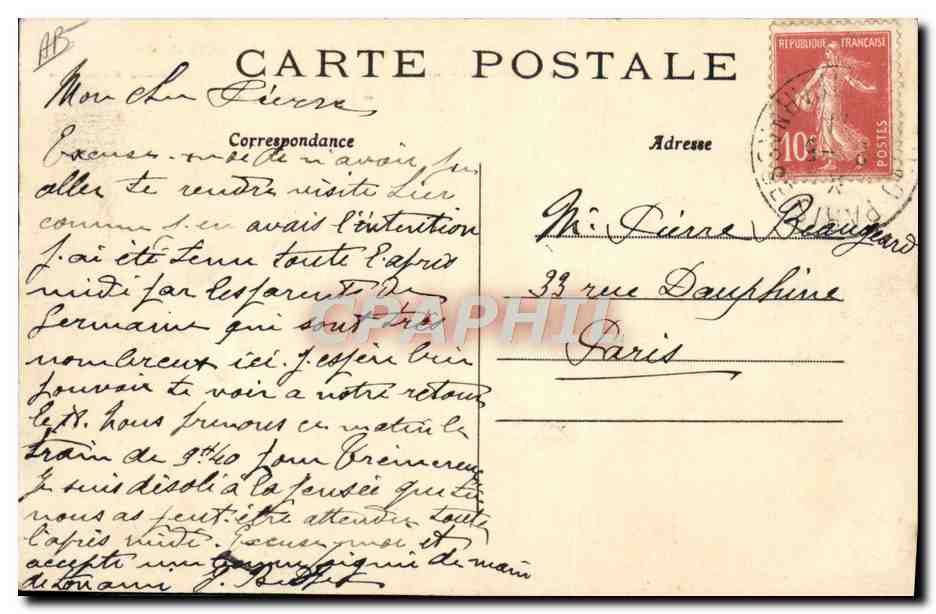 AB
CARTE POSTALE
REPUBLIQUE FRANÇAISE
10
POSTES
Mon cher Pierre
Correspondance
Adresse
Excuse-moi de n'avoir pu
aller te rendre visite hier
comme j'en avais l'intention
J'ai été tenu toute l'après
midi par les parents de
Germaine qui sont très
nombreux ici. J'espère bien
pouvoir te voir à notre retour
le 18. Nous prenons ce matin le
train de 9h40 pour
Je suis désolé à la pensée que tu
nous as peut-être attendu toute
l'après midi. Excuse moi et
accepte une bonne poignée de main
de ton ami J.
Mr Pierre Beaugeard
33 rue Dauphine
Paris
CPAPHIL